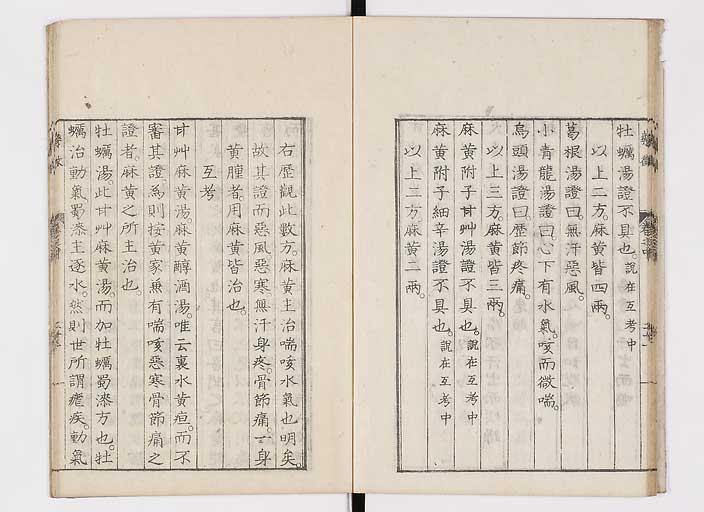 牡蠣湯證不具也。說在互考中
以上二方。麻黃皆四兩。
葛根湯證曰。無汗惡風。
小青龍湯證曰。心下有水氣。咳而微喘。
烏頭湯證曰。歷節疼痛。
以上三方。麻黃皆三兩。
麻黃附子甘艸湯證不具也。說在互考中
麻黃附子細辛湯證不具也。說在互考中
以上二方。麻黃二兩。
右歷觀此數方。麻黃主治喘咳水氣也明矣。
故其證而惡風惡寒無汗身疼。骨節痛。一身
黃腫者。用麻黃皆治也。
互考
甘艸麻黃湯。麻黃醇酒湯。唯云裏水黃疸。而不
審其證爲則按黃家兼有喘咳惡寒骨節痛之
證者。麻黃之所主治也。
牡蠣湯。此甘艸麻黃湯。而加牡蠣蜀漆方也。牡
蠣治動氣。蜀漆主逐水。然則世所謂瘧疾。動氣